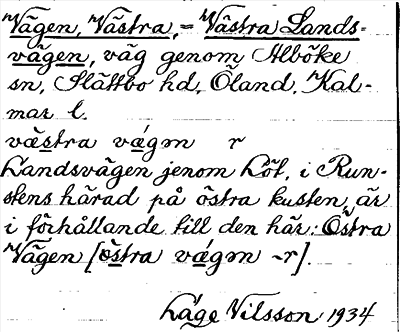 Vägen, Västra, = Västra Lands-
vägen, väg genom Alböke
sn, Slättbo hd, Öland, Kal-
mar l.
væstra vægm r
Landsvägen jenom Löt, i Run-
stens härad på östra kusten, är
i förhållande till den här: Östra
Vägen [östra vægm -r].
Låge Nilsson 1934